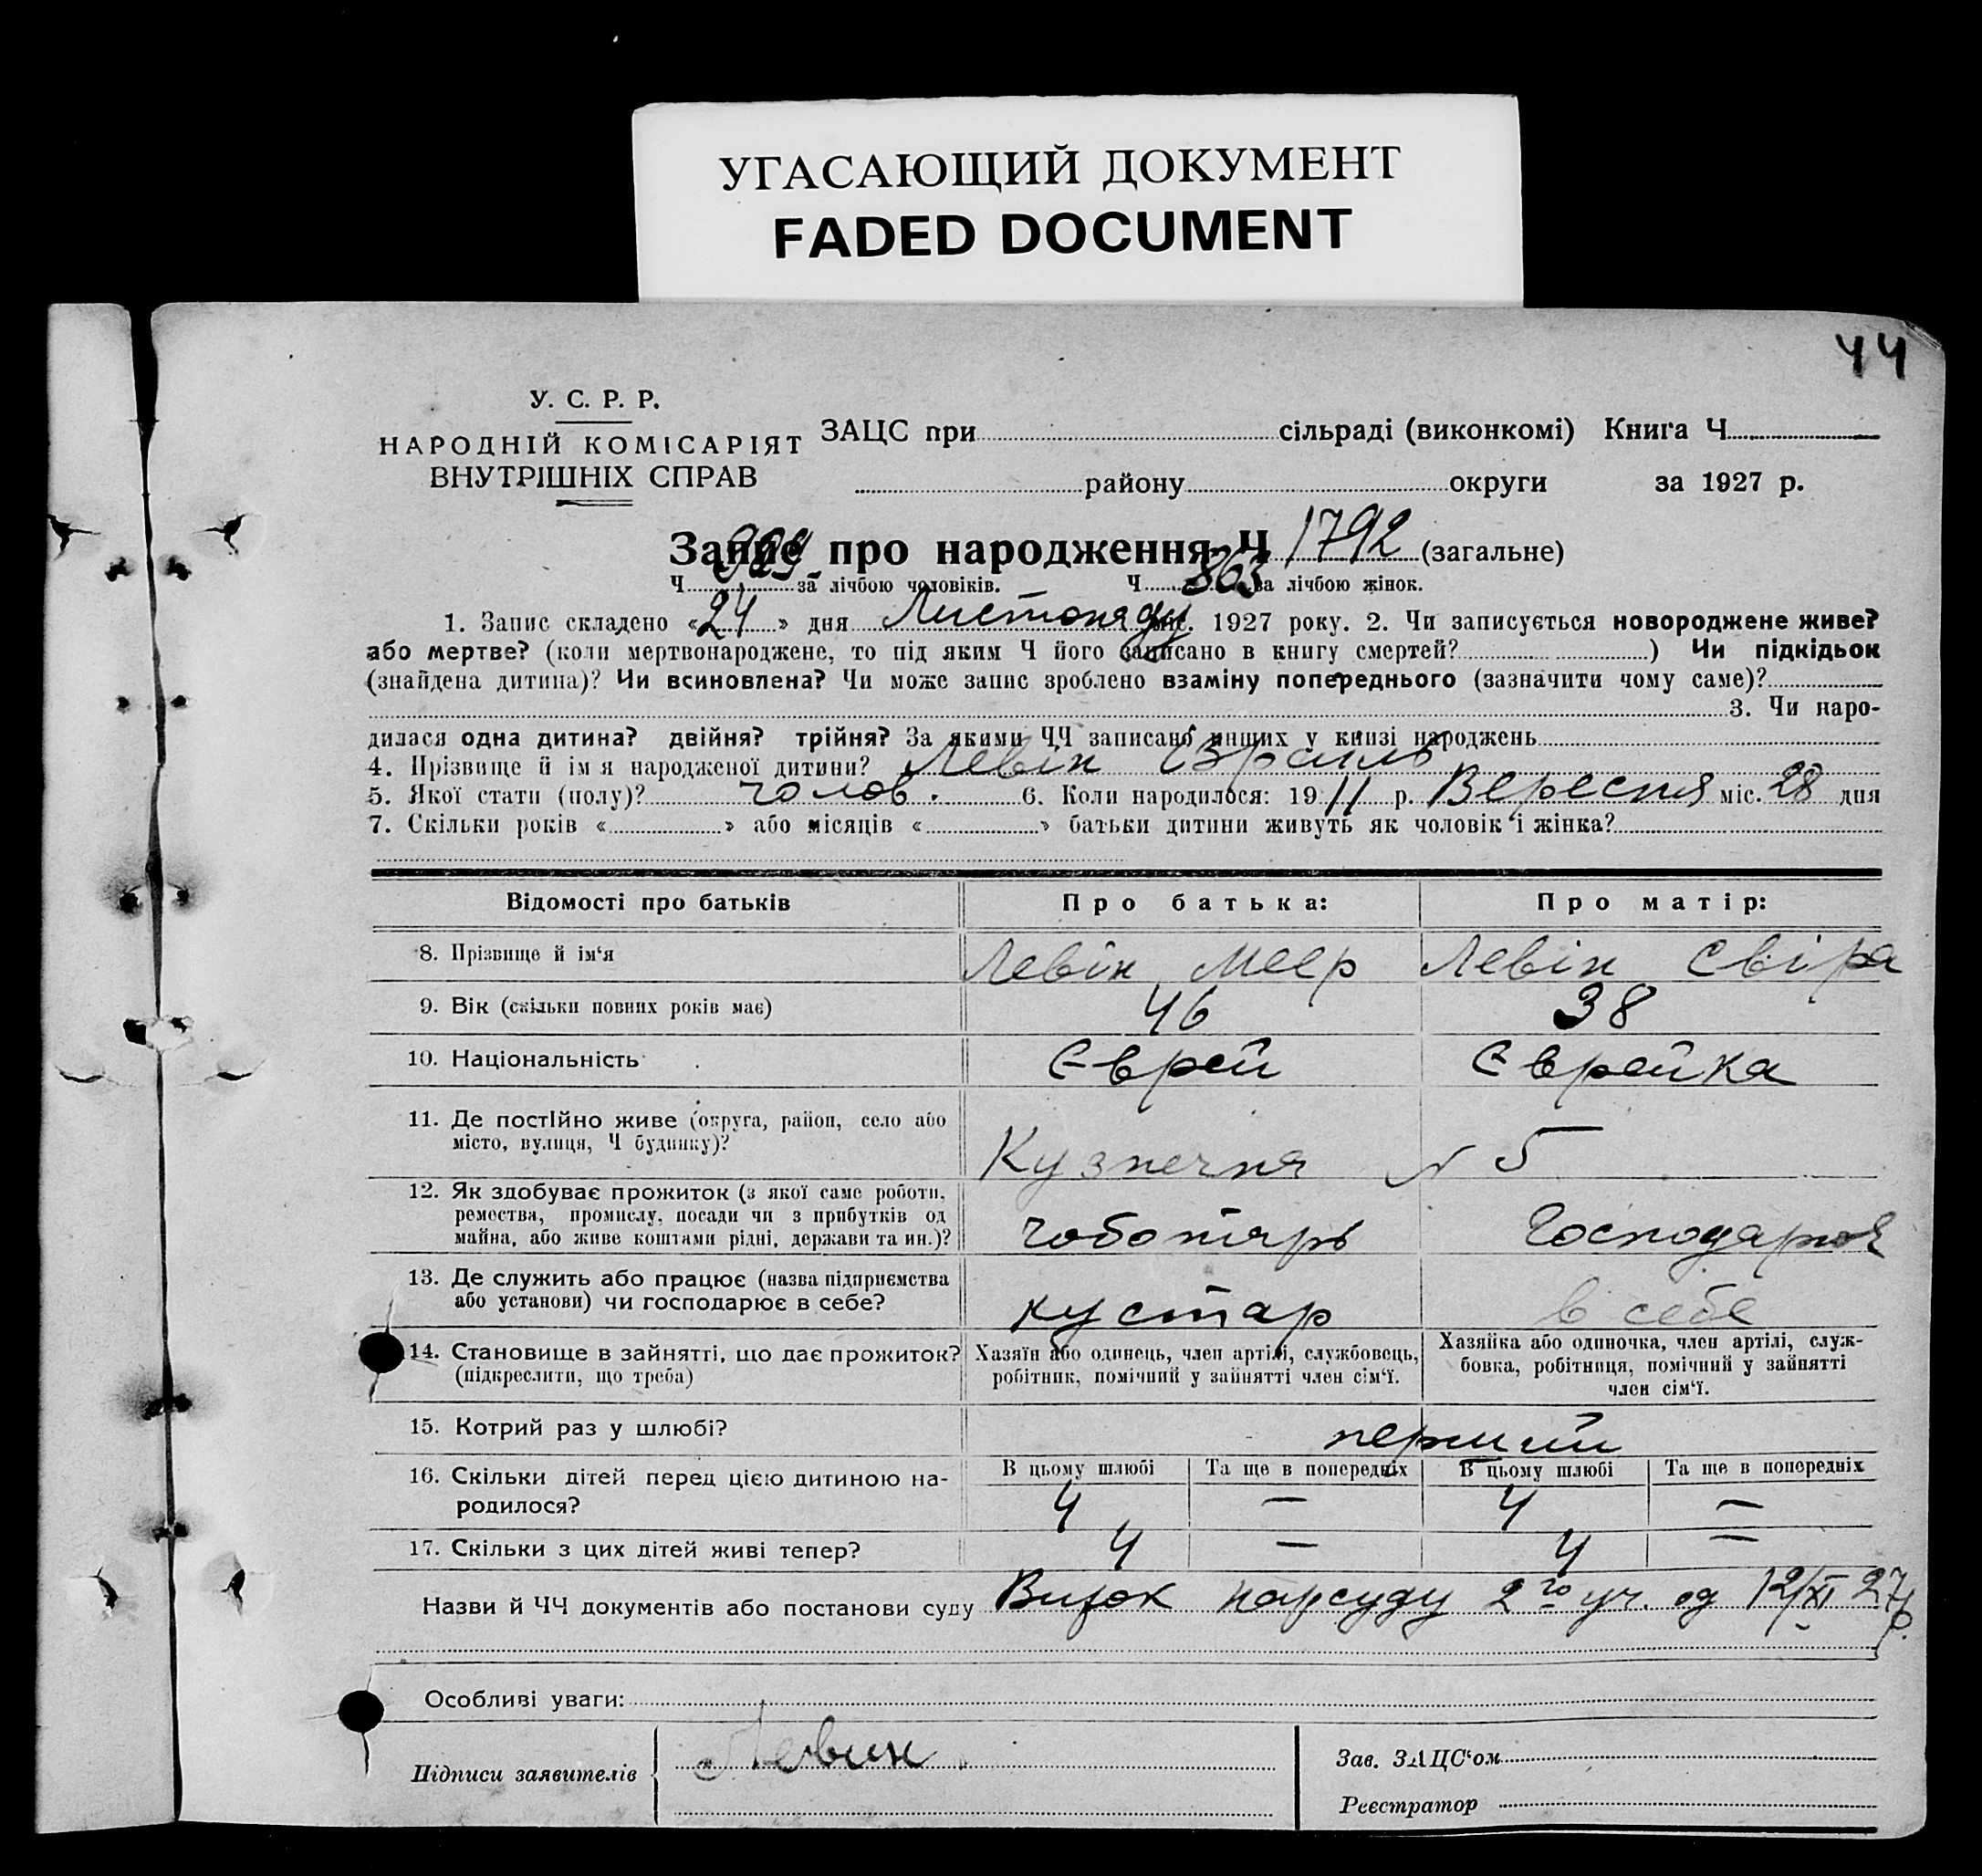 УГАСАЮЩИЙ ДОКУМЕНТ
FADED DOCUMENT
44
У. С. Р. Р.
НАРОДНІЙ КОМІСАРІЯТ
ВНУТРІШНІХ СПРАВ
ЗАЦС при сільраді (виконкомі) Книга Ч
району округи за 1927 р.
Запис про народження Ч 1792 (загальне)
Ч 929 за лічбою чоловіків. Ч 863 за лічбою жінок.
1. Запис складено «24» дня Листопаду міс. 1927 року. 2. Чи записується новороджене живе?
або мертве? (коли мертвонароджене, то під яким Ч його записано в книгу смертей?) Чи підкідьок
(знайдена дитина)? Чи всиновлена? Чи може запис зроблено взаміну попереднього (зазначити чому саме)?
3. Чи наро-
дилася одна дитина? двійня? трійня? За якими ЧЧ записано инших у книзі народжень
4. Прізвище й ім я народженої дитини? Левін Ізраиль
5. Якої стати (полу)? чолов. 6. Коли народилося: 1911 р. Вересня міс. 28 дня
7. Скільки років « » або місяців « » батьки дитини живуть як чоловік і жінка?
Відомості про батьків Про батька: Про матір:
8. Прізвище й ім‘я Левін Меер Левін Свіра
9. Вік (скільки повних років має) 46 38
10. Національність Єврей Єврейка
11. Де постійно живе (округа, район, село або
місто, вулиця, Ч будинку)? Кузнечня N 5
12. Як здобуває прожиток (з якої саме роботи,
ремества, промислу, посади чи з прибутків од
майна, або живе коштами рідні, держави та ин.)? чоботарь Господарня
13. Де служить або працює (назва підприємства
або установи) чи господарює в себе? кустар в себе
14. Становище в зайнятті, що дає прожиток?
(підкреслити, що треба)
Хазяїн або одинець, член артілі, службовець,
робітник, помічний у зайнятті член сім‘ї.
Хазяйка або одиночка, член артілі, служ-
бовка, робітниця, помічний у зайнятті
член сім‘ї.
15. Котрий раз у шлюбі? перший
16. Скільки дітей перед цією дитиною на-
родилося?
В цьому шлюбі Та ще в попередніх В цьому шлюбі Та ще в попередніх
4 — 4 —
17. Скільки з цих дітей живі тепер? 4 — 4 —
Назви й ЧЧ документів або постанови суду нарсуду 2го уч. од 12/XI 27 р.
Особливі уваги:
Підписи заявителів Левин
Зав. ЗАЦС‘ом
Реєстратор